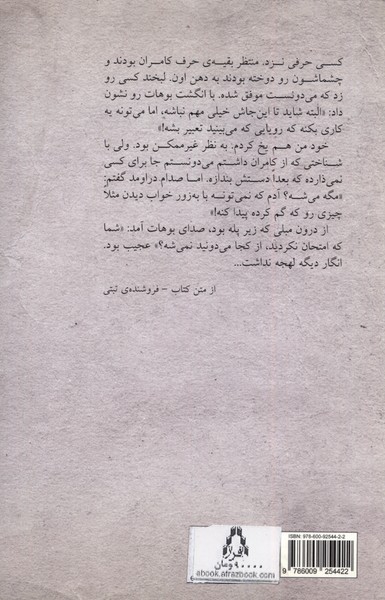 کسی حرفی نزد. منتظر بقیه‌ی حرف کامران بودند و
چشماشون رو دوخته بودند به دهن اون. لبخند کسی رو
زد که می‌دونست موفق شده. با انگشت بوهات رو نشون
داد: «البته شاید تا این‌جاش خیلی مهم نباشه، اما می‌تونه یه
کاری بکنه که رویایی که می‌بینید تعبیر بشه!»
خود من هم یخ کردم. به نظر غیرممکن بود. ولی با
شناختی که از کامران داشتم می‌دونستم جا برای کسی
نمی‌ذارده که بعداً دستش بندازه. اما صدام دراومد گفتم:
«مگه می‌شه؟ آدم که نمی‌تونه با به‌زور خواب دیدن مثلاً
چیزی رو که گم کرده پیدا کنه!»
از درون مبلی که زیر پله بود، صدای بوهات آمد: «شما
که امتحان نکردید، از کجا می‌دونید نمی‌شه؟» عجیب بود.
انگار دیگه لهجه نداشت...
از متن کتاب – فروشنده‌ی تبتی
افراز
۹۰۰۰۰ تومان
ebook.afrazbook.com
ISBN: 978-600-92544-2-2
9 786009 254422